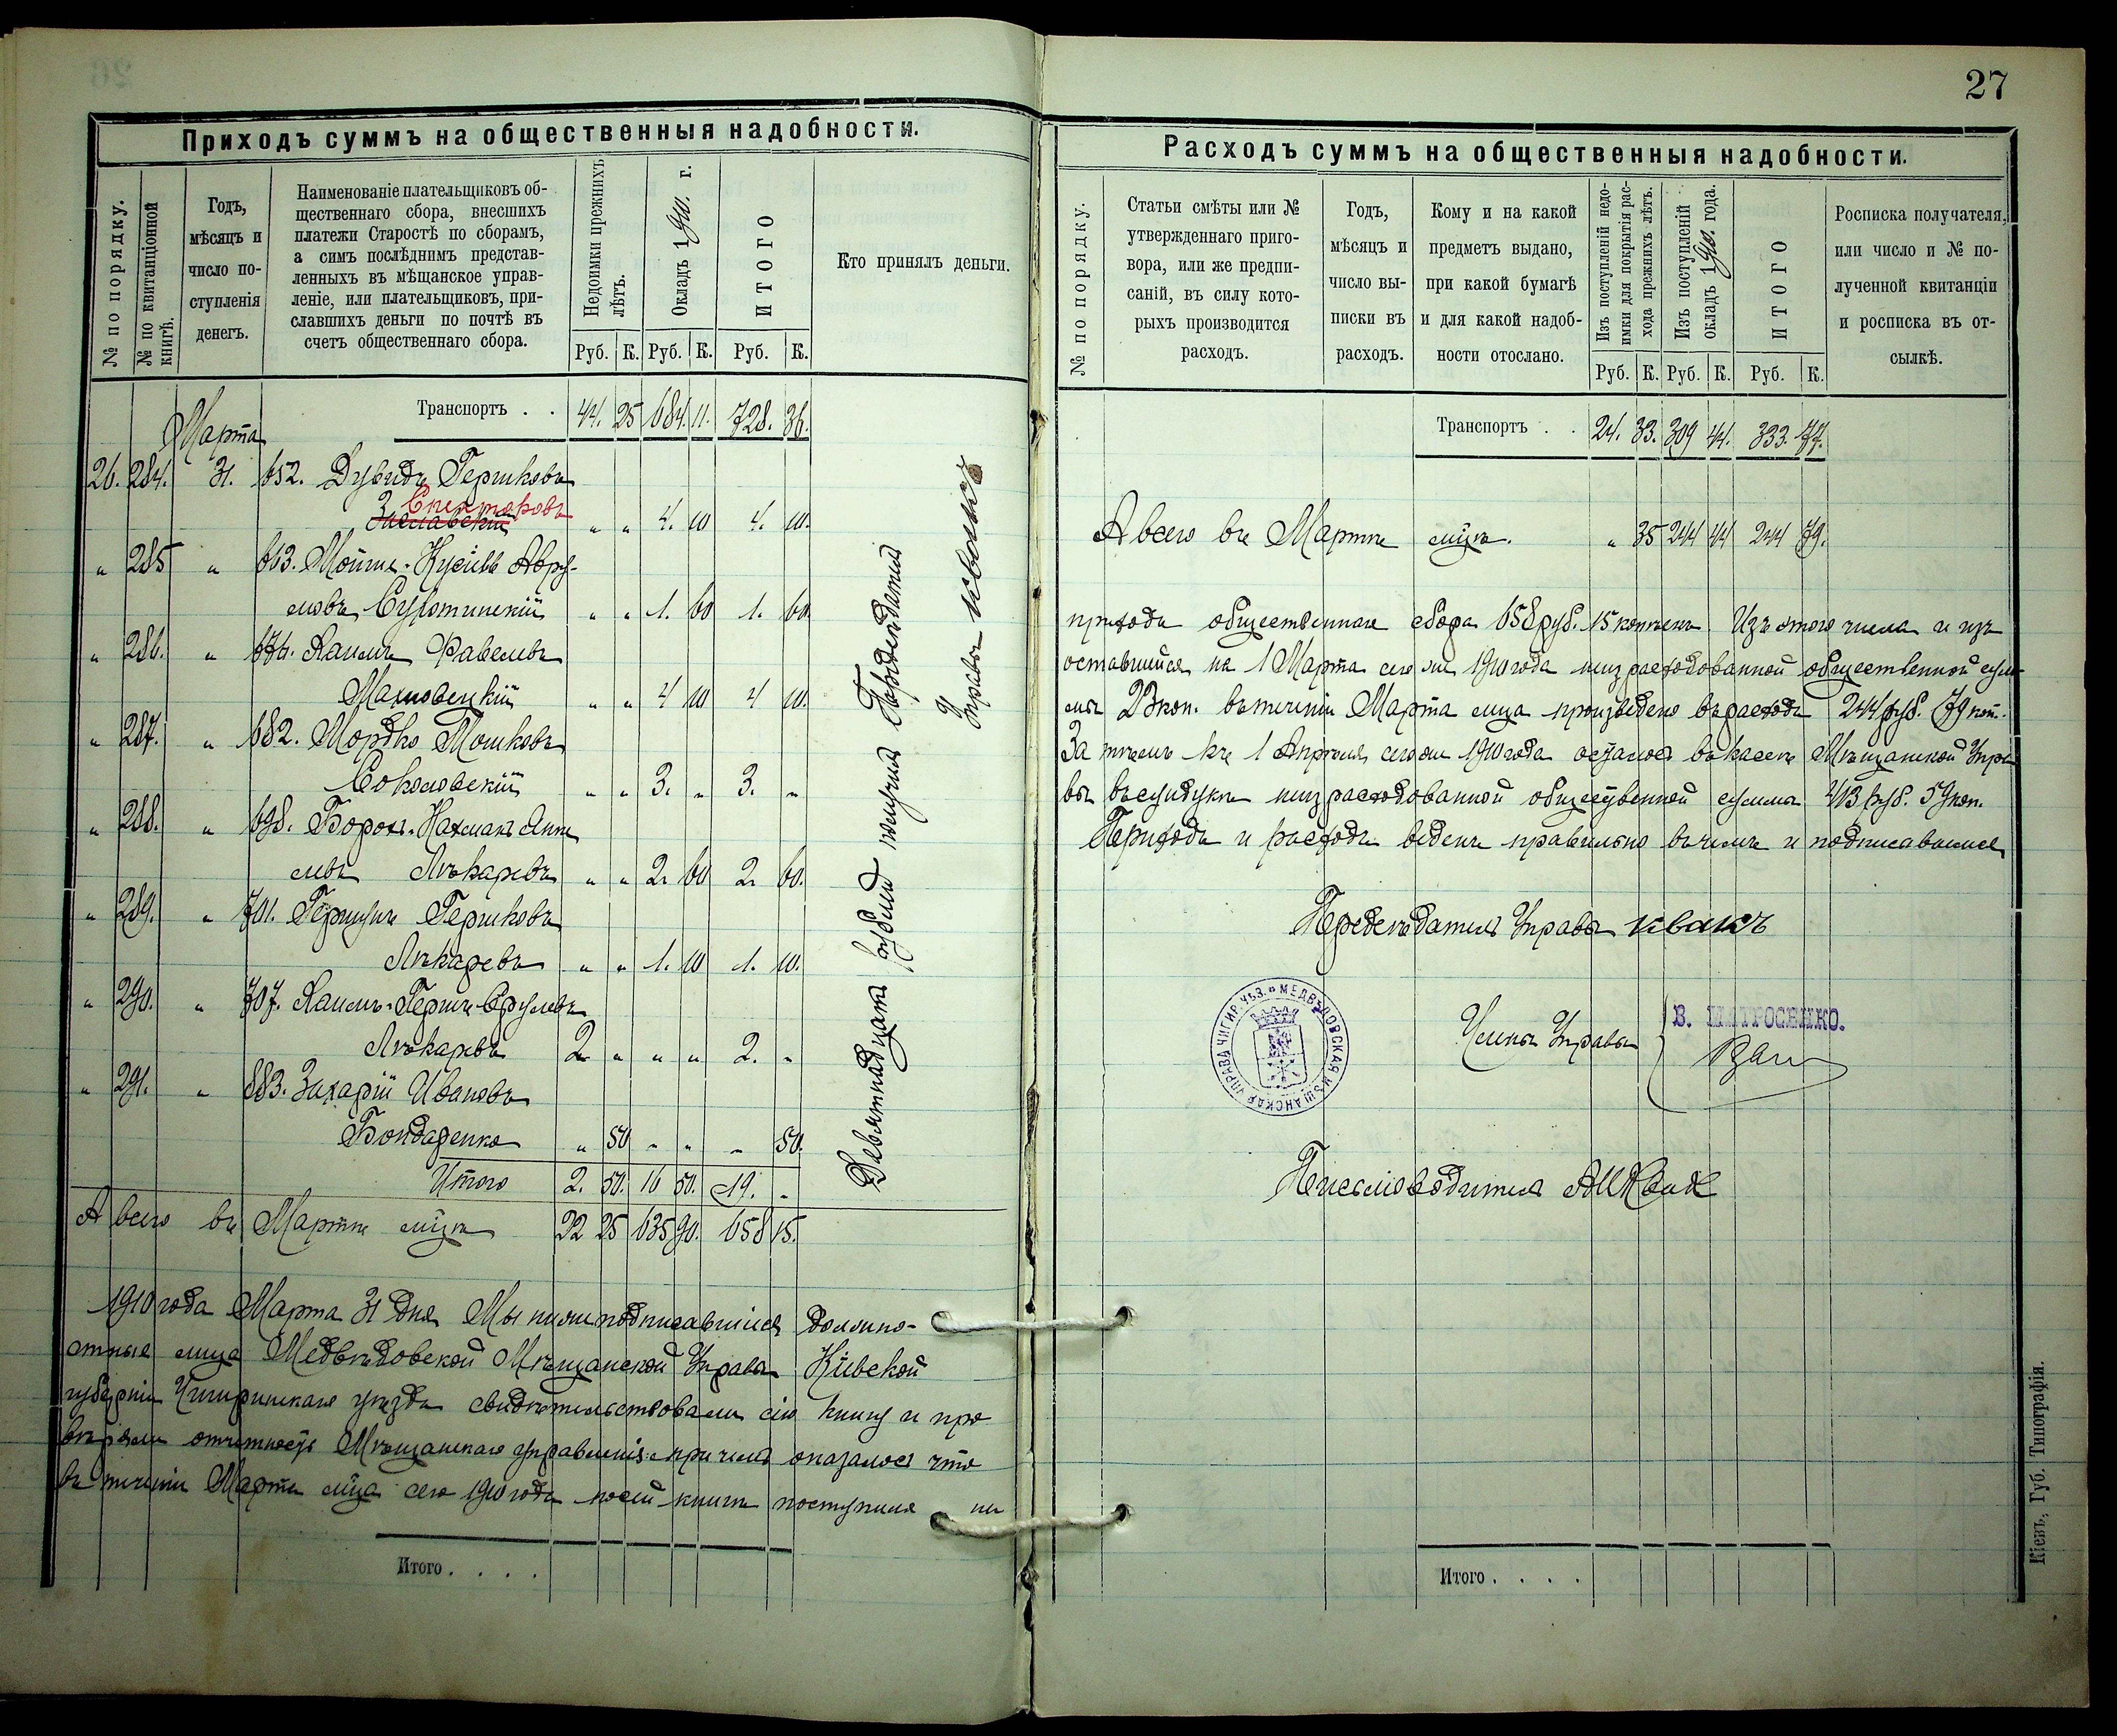 Приходъ суммъ на общественныя надобности.
№ по порядку.
№ по квитанціонной книгѣ.
Годъ,
мѣсяцъ и
число по-
ступленія
денегъ.
Наименованіе плательщиковъ об-
щественнаго сбора, внесшихъ
платежи Старостѣ по сборамъ,
а симъ послѣднимъ представ-
ленныхъ въ мѣщанское управ-
леніе, или плательщиковъ, при-
славшихъ деньги по почтѣ въ
счетъ общественнаго сбора.
Недоимки прежнихъ
лѣтъ.
Окладъ 1910. г.
ИТОГО
Кто принялъ деньги.
Руб. К. Руб. К. Руб. К.
Транспортъ . . 44. 25 684. 11. 728. 36.
Марта
26. 284. 31. 652. Дувидъ Гершковъ
Спекторовъ
Заславскій " " 4. 10 4. 10.
" 285 " 663. Мойше-Кусіель Авру-
мовъ Суботинскій " " 1. 60 1. 60.
" 286. " 676. Хаимъ Фавелевъ
Махновецкій " " 4 10 4 10.
" 287. " 682. Мордко Мошковъ
Соколовскій " " 3. " 3. "
" 288. " 698. Борохъ-Нахманъ Анш
левъ Лѣкаревъ " " 2. 60 2. 60.
" 289. " 701. Гершунъ Гершковъ
Лѣкаревъ " " 1. 10 1. 10.
" 290. " 707. Хаимъ-Гершъ Срулевъ
Лѣкаревъ 2 " " " 2. "
" 291. " 883. Захарій Ивановъ
Бондаренко " 50 " " " 50.
Итого 2. 50. 16 50. 19. "
А всего въ Мартѣ мѣцѣ 22 25 635 90. 658 15.
Девятнадцать рублей получилъ Предсѣдатель
Управы Квакъ
1910 года Марта 31 дня Мы нижеподписавшіеся должно-
стные лица Медвѣдовской Мѣщанской Управы Кіевской
губерніи Чигиринскаго уѣзда свидѣтельствовали сію книгу и про
вѣряли отчетность Мѣщанскаго управленія причемъ оказалось что
въ теченіи Марта мѣца сего 1910 года по сей книгѣ поступило на
Итого . . . .
27
Расходъ суммъ на общественныя надобности.
№ по порядку.
Статьи смѣты или №
утвержденнаго приго-
вора, или же предпи-
саній, въ силу кото-
рыхъ производится
расходъ.
Годъ,
мѣсяцъ и
число вы-
писки въ
расходъ.
Кому и на какой
предметъ выдано,
при какой бумагѣ
и для какой надоб-
ности отослано.
Изъ поступленій недо-
имки для покрытія рас-
хода прежнихъ лѣтъ.
Изъ поступленій
окладъ 1910. года.
ИТОГО
Росписка получателя,
или число и № по-
лученной квитанціи
и росписка въ от-
сылкѣ.
Руб. К. Руб. К. Руб. К.
Транспортъ . . 24. 33. 309 44. 333. 77.
А всего въ Мартѣ мѣцѣ. " 35 244 44 244 79.
приходъ общественнаго сбора 658 руб. 15 копѣекъ Изъ этого числа и изъ
оставшейся на 1 Марта сего же 1910 года неизрасходованной общественной сум-
мы 23 коп. въ теченіи Марта мѣца произведено въ расходъ 244 руб. 79 коп.
За тѣмъ къ 1 Апрѣля сего же 1910 года осталось въ кассѣ Мѣщанской Упра
вы въ сундукѣ неизрасходованной общественной суммы 413 руб. 59 коп.
Приходъ и расходъ веденъ правильно въ чемъ и подписываемся
Предсѣдатель Управы Квакъ
УПРАВА ЧИГИР. УѢЗ. МЕДВѢДОВСКАЯ МѢЩАНСКАЯ
Члены Управы
В. МАТРОСЕНКО.
Письмоводитель
Итого . . . .
Кіевъ, Губ. Типографія.